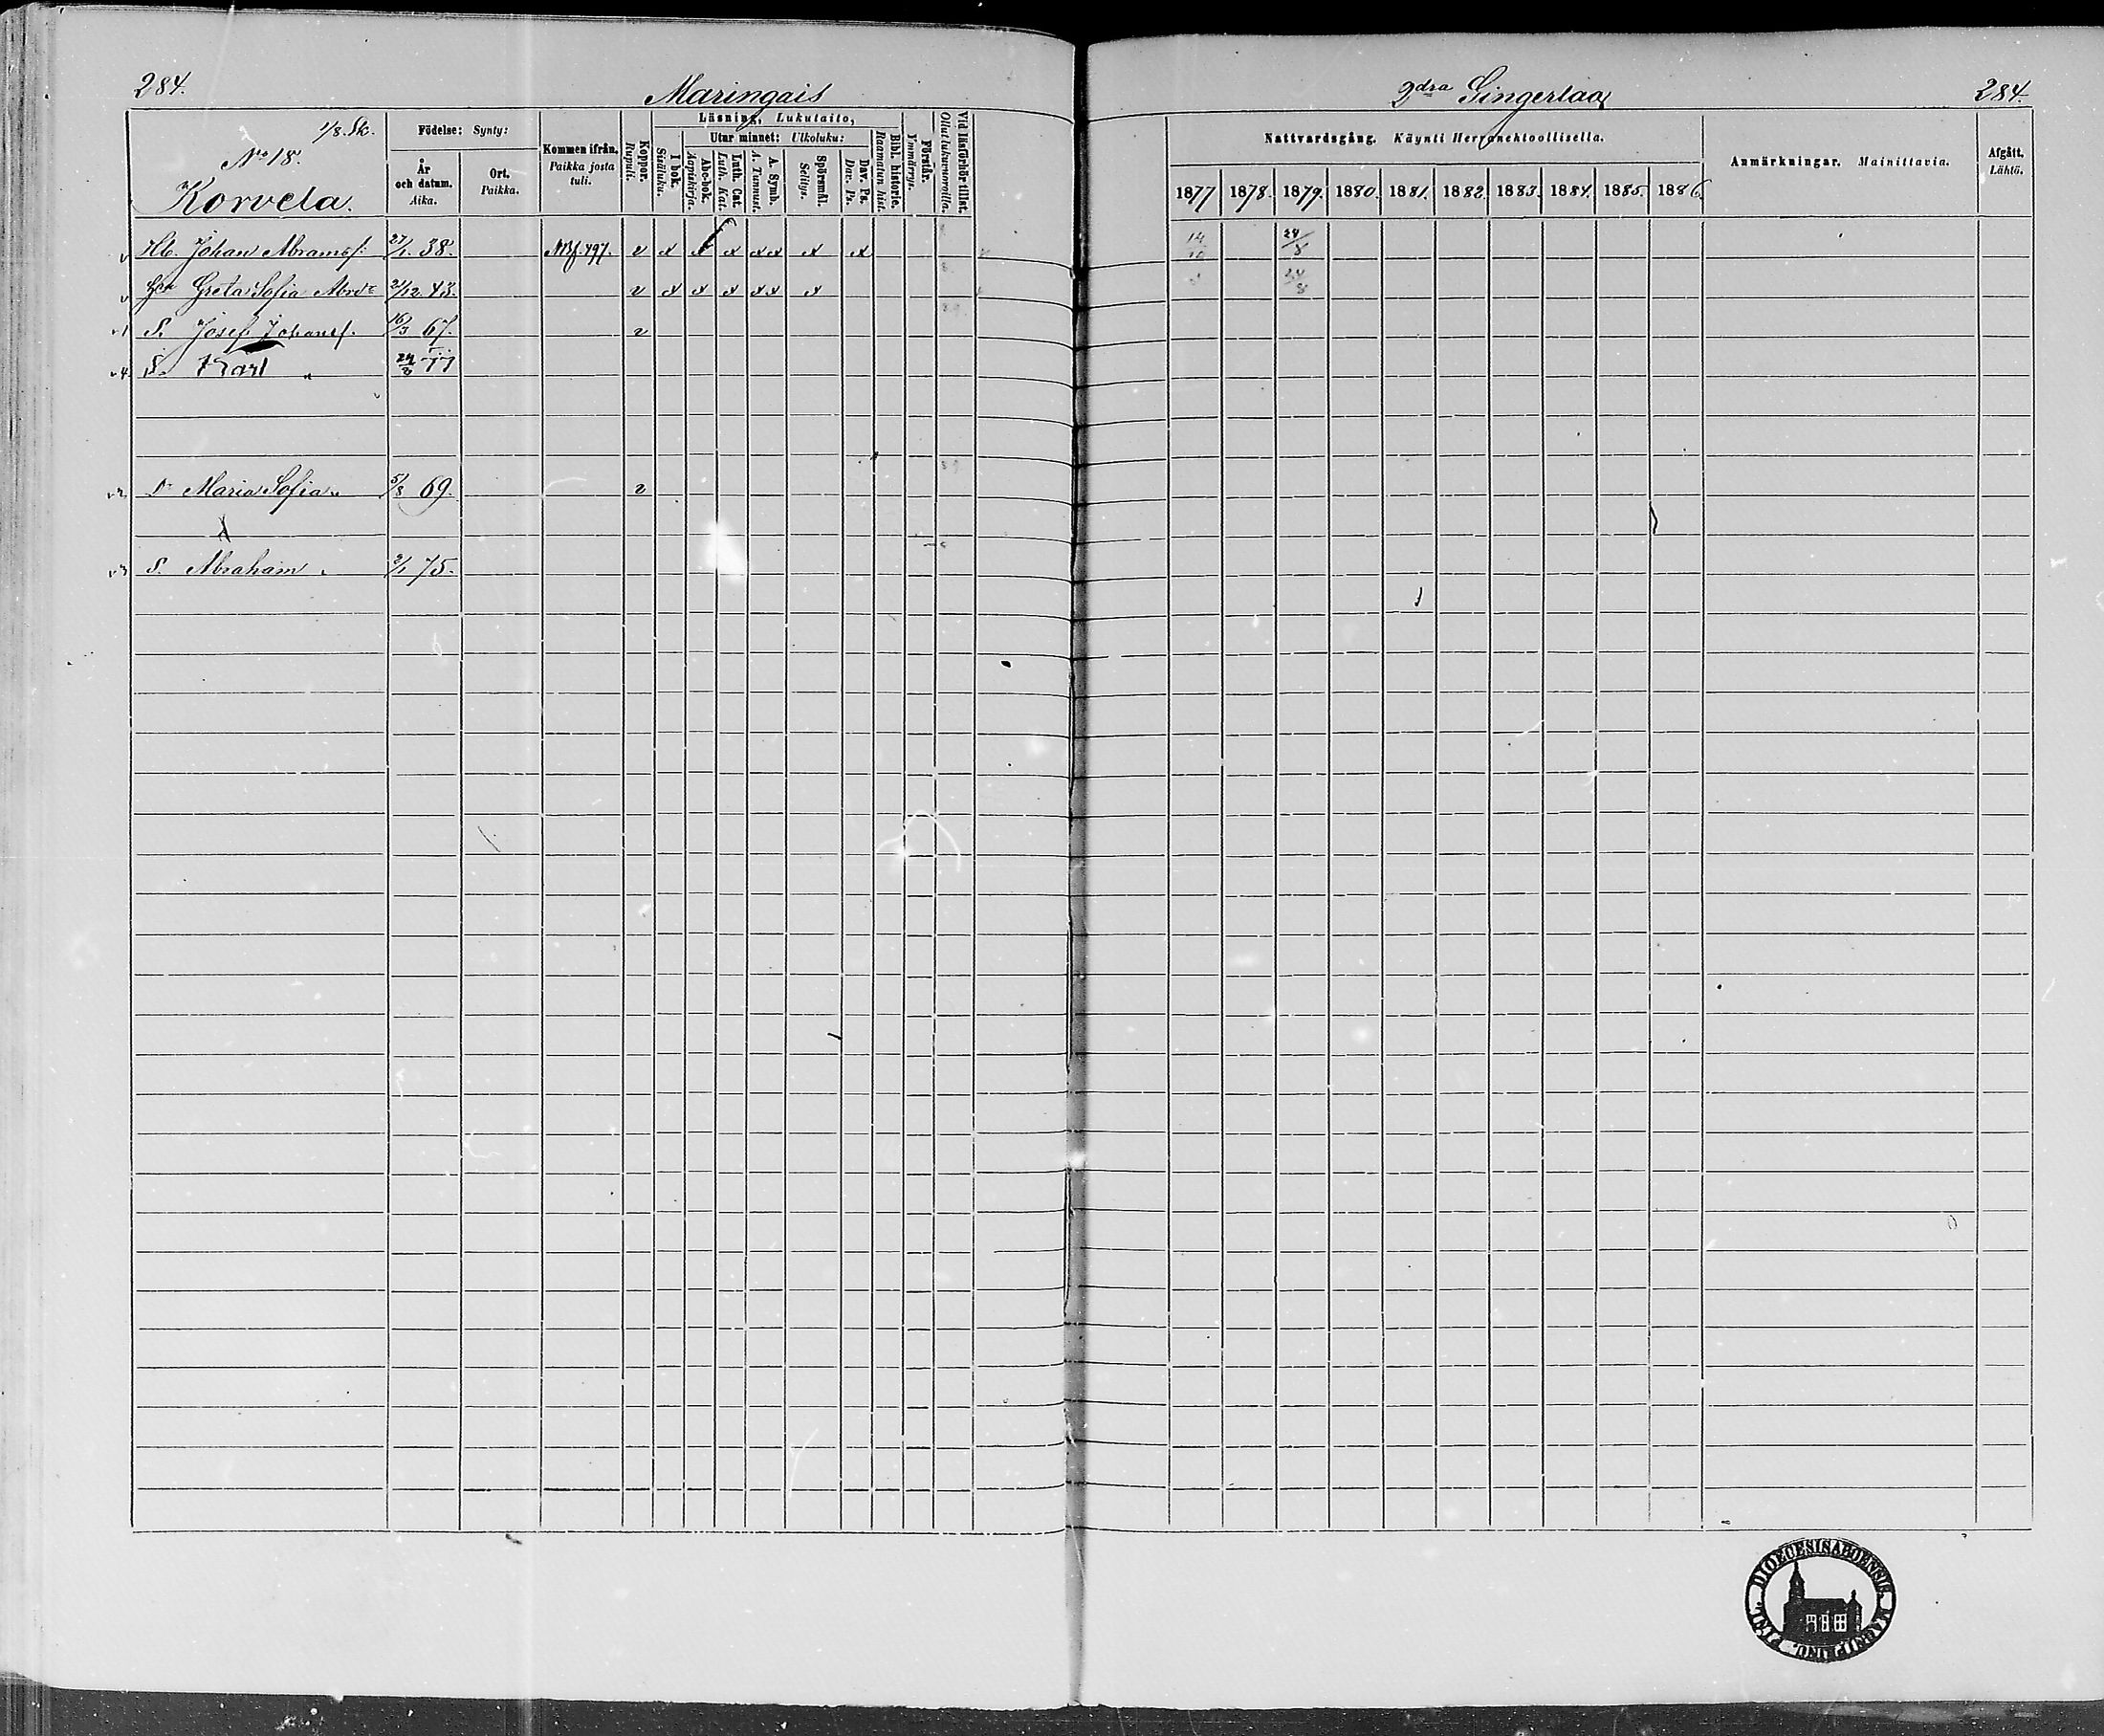 284. Maringais 2dra Singerlaa 284.
1/8. Sk.
No 18.
Korvela.
Födelse: Synty:
År och datum. Aika.
Ort. Paikka.
Kommen ifrån. Paikka josta tuli.
Koppor. Rupuli.
Läsning, Lukutaito,
I bok. Sisäluku.
Utur minnet: Ulkoluku:
Abc-bok. Aapiskirja.
Luth. Cat. Luth. Kat.
A. Symb. A. Tunnust.
Spörsmål. Selitys.
Dav. Ps. Dav. Ps.
Bibl. historie. Raamatun hist.
Förstår. Ymmärrys.
Vid läsförhör tillst. Ollut lukuvuoroilla.
Nattvardsgång. Käynti Herranehtoollisella.
1877 1878. 1879. 1880. 1881. 1882. 1883. 1884. 1885. 1886.
Anmärkningar. Mainittavia.
Afgått. Lähtö.
v Hb. Johan Abramsf. 27/1. 38. v x x x x x x x 14/10 24/8
v Hu Greta Sofia Abrd. 21/12 43. v x x x x x x 24/8
v1 S. Josef Johansf. 16/3 67. v
v4 S. Karl " 77
v2 Dr Maria Sofia " 5/8 69. v
v3 S. Abraham " 2/1 75.
DIOECESIS ABOENSIS